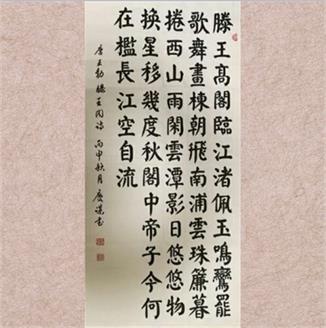 滕王高閣臨江渚佩玉鳴鸞罷
歌舞畫棟朝飛南浦雲珠簾暮
捲西山雨閑雲潭影日悠悠物
換星移幾度秋閣中帝子今何
在檻長江空自流
唐王勃滕王阁詩 丙申秋月